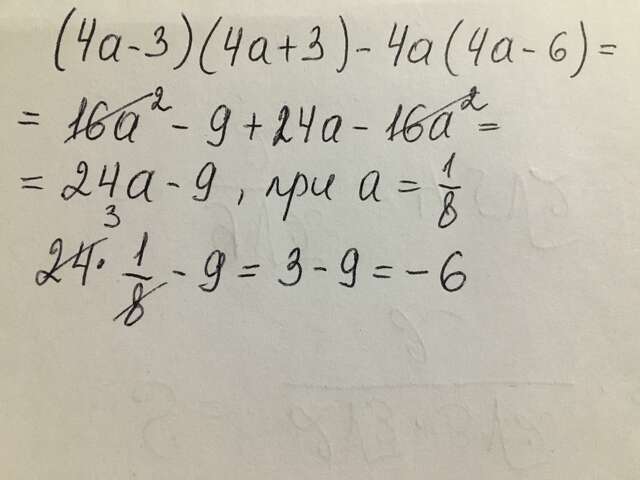 (4a-3)(4a+3)-4a(4a-6)=
= 16a² - 9 + 24a - 16a² =
= 24a - 9, при a = 1/8
24 · 1/8 - 9 = 3 - 9 = -6
3